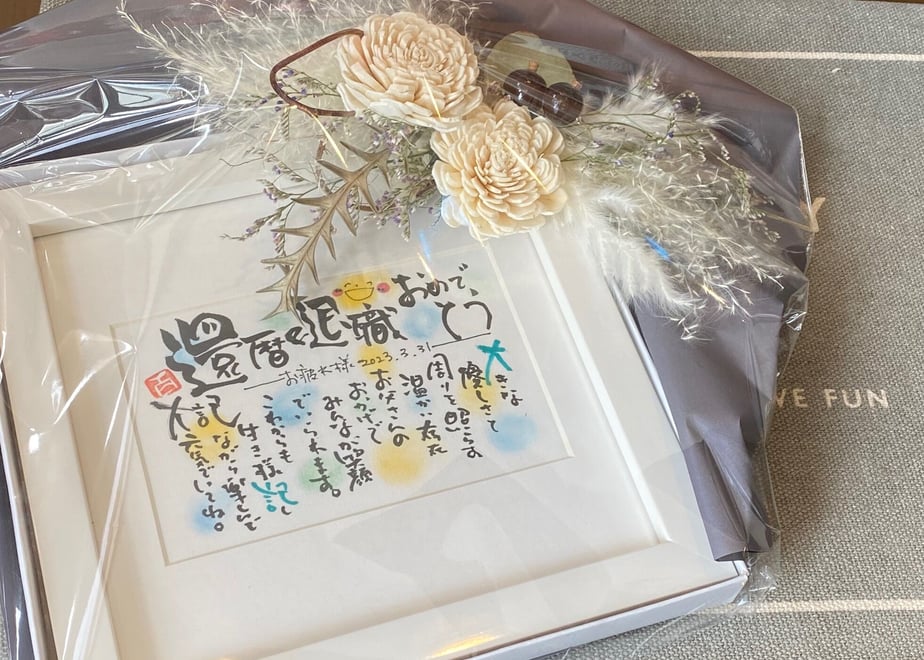 還暦と退職おめでとう
お疲れ様 2023.3.31
大きな
優しさで
周りを照らす
温かい存在
お父さんの
おかげで
みんなが笑顔
でいられます。
これからも
ながら楽しんで
元気でいてね。
WE FUN